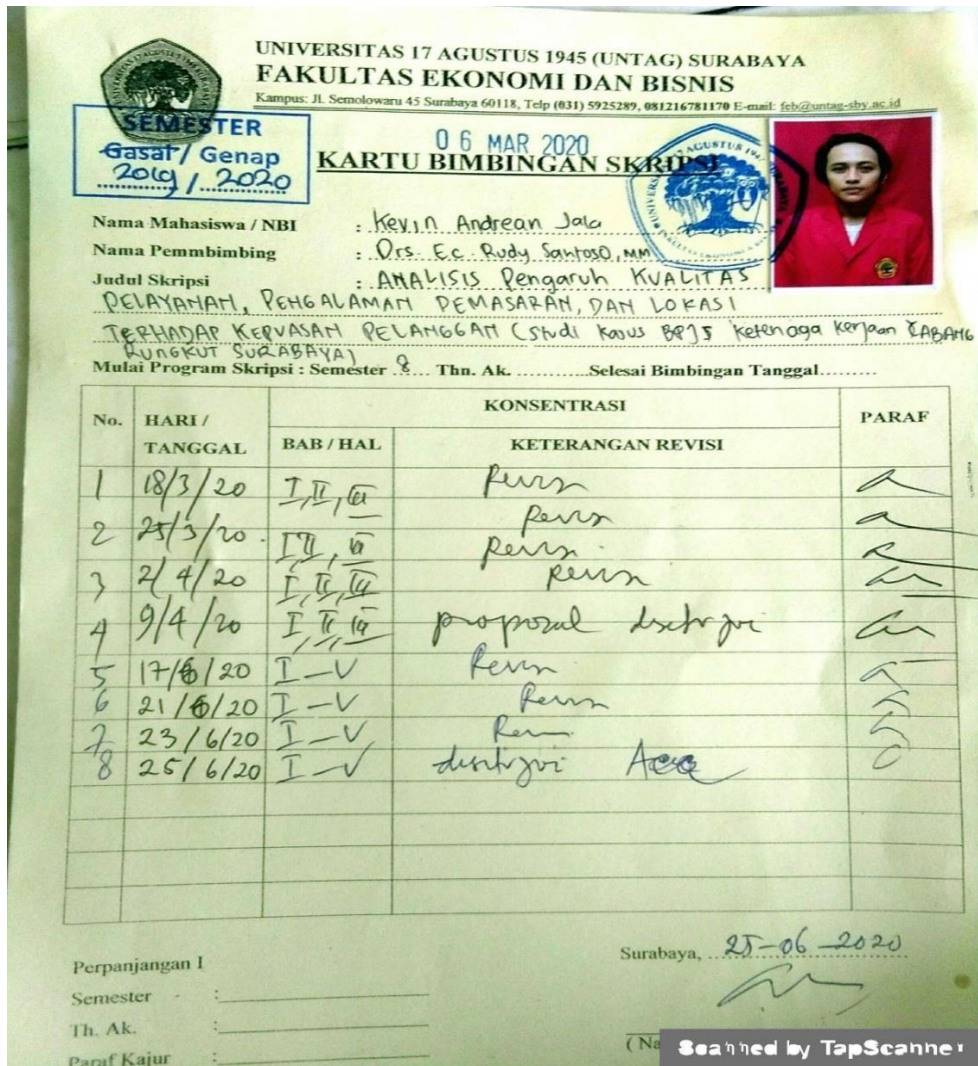 UNIVERSITAS 17 AGUSTUS 1945 (UNTAG) SURABAYA
FAKULTAS EKONOMI DAN BISNIS
Kampus: Jl. Semolowaru 45 Surabaya 60118, Telp (031) 5925289, 081216781170 E-mail: feb@untag-sby.ac.id
SEMESTER
Gasal / Genap
2019 / 2020
06 MAR 2020
KARTU BIMBINGAN SKRIPSI
Nama Mahasiswa / NBI : Kevin Andrean Jala
Nama Pemmbimbing : Drs. Ec. Rudy Santoso, MM
Judul Skripsi : ANALISIS Pengaruh KUALITAS
PELAYANAN, PENGALAMAN PEMASARAN, DAN LOKASI
TERHADAP KEPUASAN PELANGGAN (Studi Kasus BPJS Ketenaga kerjaan CABANG
RUNGKUT SURABAYA)
Mulai Program Skripsi : Semester 8 Thn. Ak. ............Selesai Bimbingan Tanggal.........
No. HARI / TANGGAL KONSENTRASI PARAF
BAB / HAL KETERANGAN REVISI
1 18/3/20 I, II, III Revisi
Revisi
2 25/3/20 I II, III Revisi
3 2/4/20 I, II, III Revisi
4 9/4/20 I II III proposal disetujui
5 17/6/20 I-V Revisi
6 21/6/20 I-V Revisi
7 23/6/20 I-V Revisi
8 25/6/20 I-V disetujui Acc
Surabaya, 25-06-2020
Perpanjangan I
Semester :
Th. Ak. :
Paraf Kajur :
( Na
Scanned by TapScanner